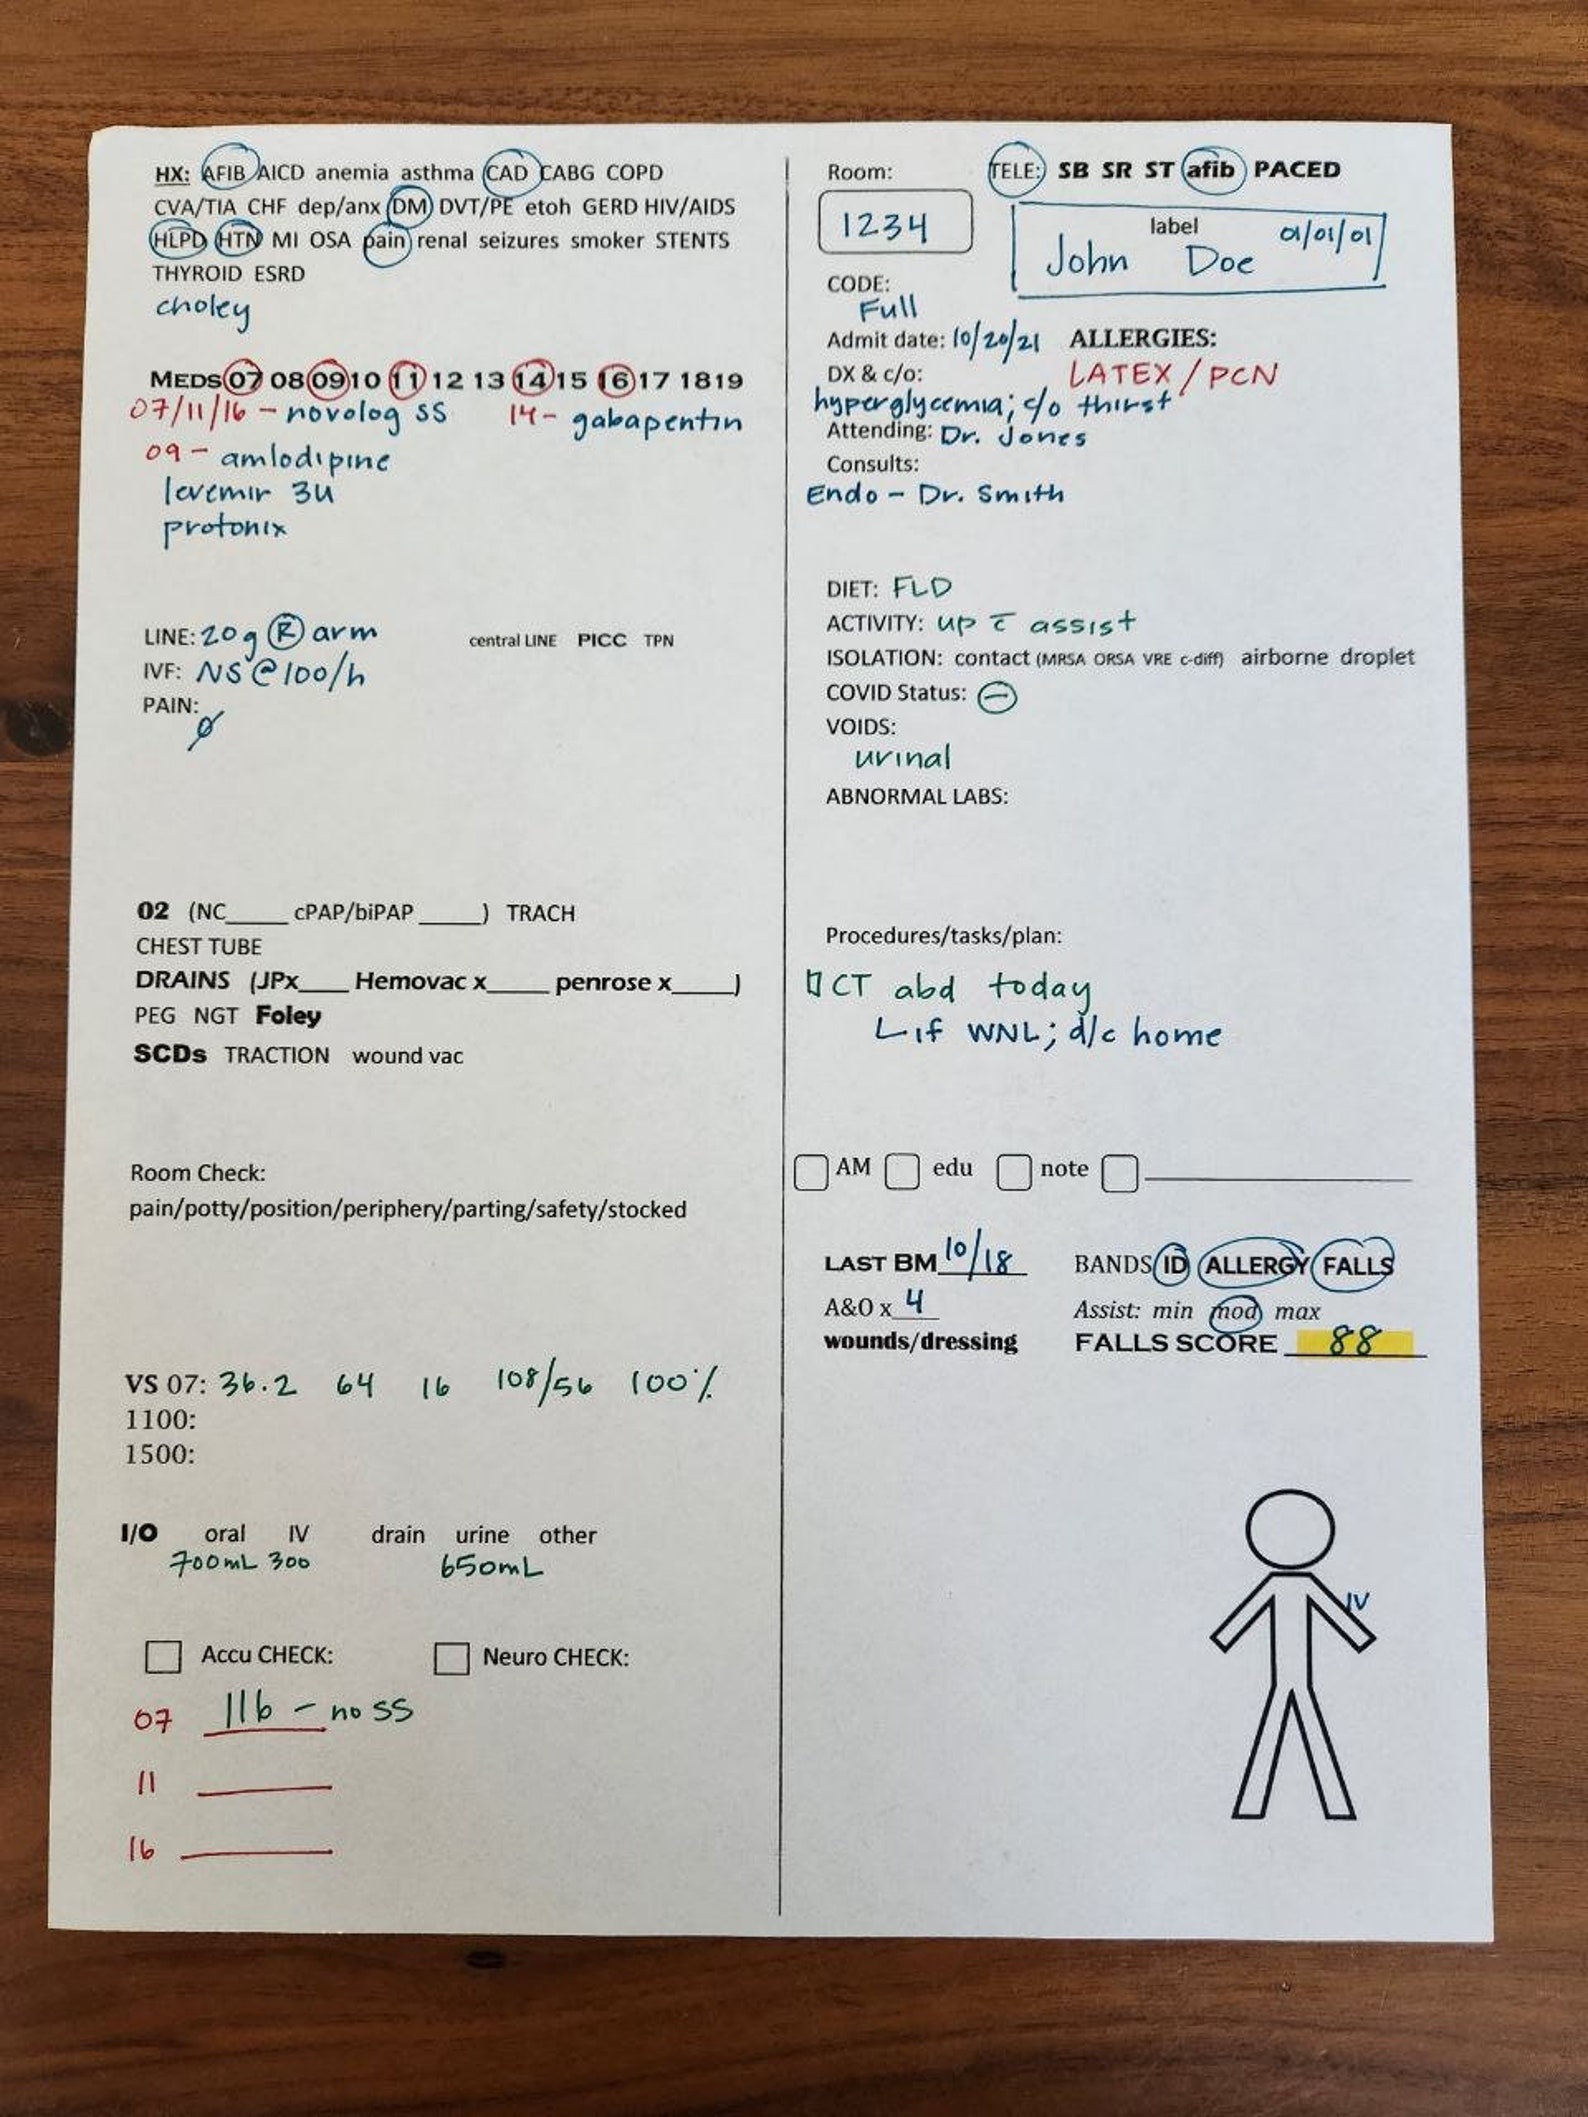 HX: AFIB AICD anemia asthma CAD CABG COPD
CVA/TIA CHF dep/anx DM DVT/PE etoh GERD HIV/AIDS
HLPD HTN MI OSA pain renal seizures smoker STENTS
THYROID ESRD
choley
MEDS 07 08 09 10 11 12 13 14 15 16 17 18 19
07/11/16 - novolog SS 14- gabapentin
09 - amlodipine
levemir 3u
protonix
LINE: 20g R arm central LINE PICC TPN
IVF: NS @ 100/h
PAIN:
ø
02 (NC_____ cPAP/biPAP _____) TRACH
CHEST TUBE
DRAINS (JPx____ Hemovac x_____ penrose x_____)
PEG NGT Foley
SCDs TRACTION wound vac
Room Check:
pain/potty/position/periphery/parting/safety/stocked
VS 07: 36.2 64 16 108/56 100%
1100:
1500:
I/O oral IV drain urine other
700mL 300 650mL
Accu CHECK: Neuro CHECK:
07 116 - no SS
11
16
Room: TELE: SB SR ST afib PACED
1234
label 01/01/01
John Doe
CODE:
Full
Admit date: 10/20/21 ALLERGIES:
DX & c/o: LATEX / PCN
hyperglycemia; c/o thirst
Attending: Dr. Jones
Consults:
Endo - Dr. Smith
DIET: FLD
ACTIVITY: up c̄ assist
ISOLATION: contact (MRSA ORSA VRE c-diff) airborne droplet
COVID Status: ⊖
VOIDS:
urinal
ABNORMAL LABS:
Procedures/tasks/plan:
CT abd today
if WNL; d/c home
AM edu note
LAST BM 10/18 BANDS ID ALLERGY FALLS
A&O x 4 Assist: min mod max
wounds/dressing FALLS SCORE 88
IV